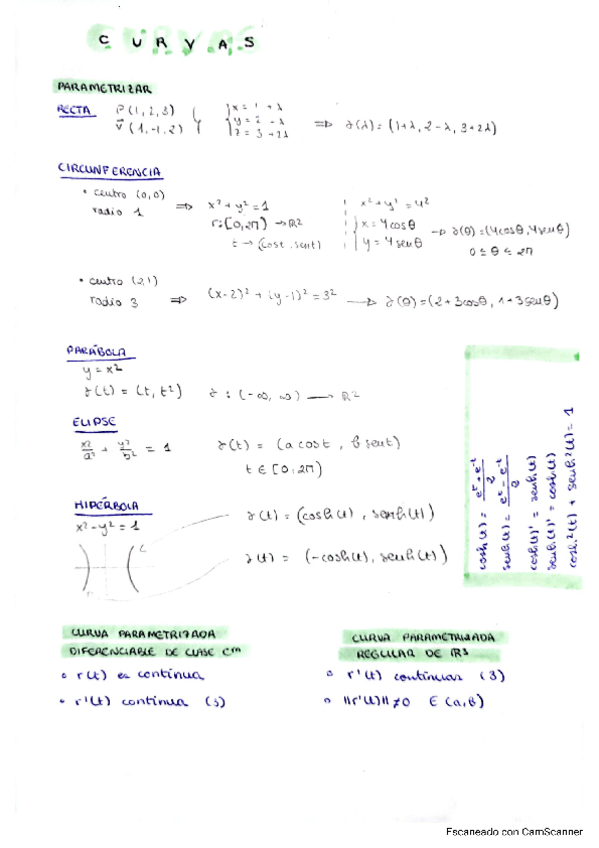 CURVAS
PARAMETRIZAR
RECTA P(1,2,3) { x = 1 + λ
v⃗(1,-1,2) y = 2 - λ
z = 3 + 2λ ⇒ γ(λ) = (1+λ, 2-λ, 3+2λ)
CIRCUNFERENCIA
• centro (0,0)
radio 1 ⇒ x² + y² = 1
r: [0,2π) → R²
t → (cost, sent)
x² + y² = 4²
{ x = 4cosθ
y = 4senθ → γ(θ) = (4cosθ, 4senθ)
0 ≤ θ ≤ 2π
• centro (2,1)
radio 3 ⇒ (x-2)² + (y-1)² = 3² → γ(θ) = (2+3cosθ, 1+3senθ)
PARÁBOLA
y = x²
γ(t) = (t, t²) γ : (-∞, ∞) → R²
ELIPSE
x²/a² + y²/b² = 1 γ(t) = (a cost, b sent)
t ∈ [0,2π)
HIPÉRBOLA
x² - y² = 1
γ(t) = (cosh(t), senh(t))
γ(t) = (-cosh(t), senh(t))
cosh(t) = e^t + e^-t / 2
senh(t) = e^t - e^-t / 2
cosh(t)' = senh(t)
senh(t)' = cosh(t)
cosh²(t) + senh²(t) = 1
CURVA PARAMETRIZADA
DIFERENCIABLE DE CLASE Cᵐ
• r(t) es continua
• r'(t) continua (3)
CURVA PARAMETRIZADA
REGULAR DE R³
• r'(t) continuas (3)
• ||r'(t)|| ≠ 0 ∈ (a,b)
Escaneado con CamScanner